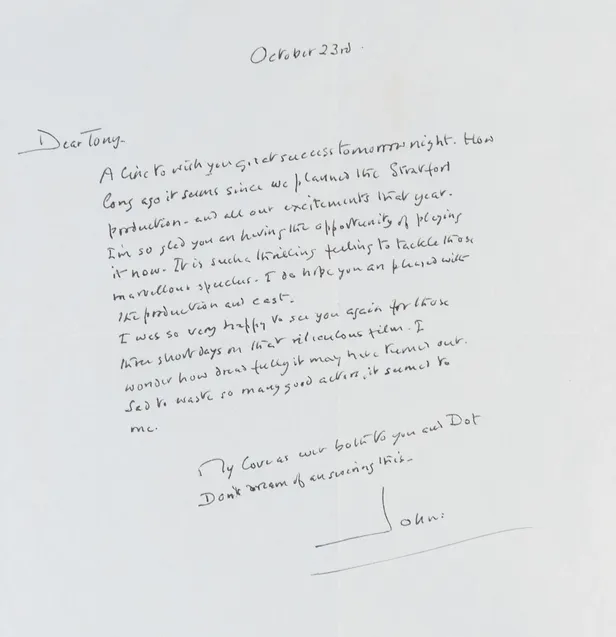 October 23rd.
Dear Tony-
A line to wish you great success tomorrow night. How
long ago it seems since we planned the Stratford
production - and all our excitements that year.
I'm so glad you are having the opportunity of playing
it now. It is such a thrilling feeling to tackle those
marvellous speeches. I do hope you are pleased with
the production and cast.
I was so very happy to see you again for those
three short days on that ridiculous film. I
wonder how dreadfully it may have turned out.
Sad to waste so many good actors, it seemed to
me.
My love as ever both to you and Dot
Don't dream of answering this-
John.